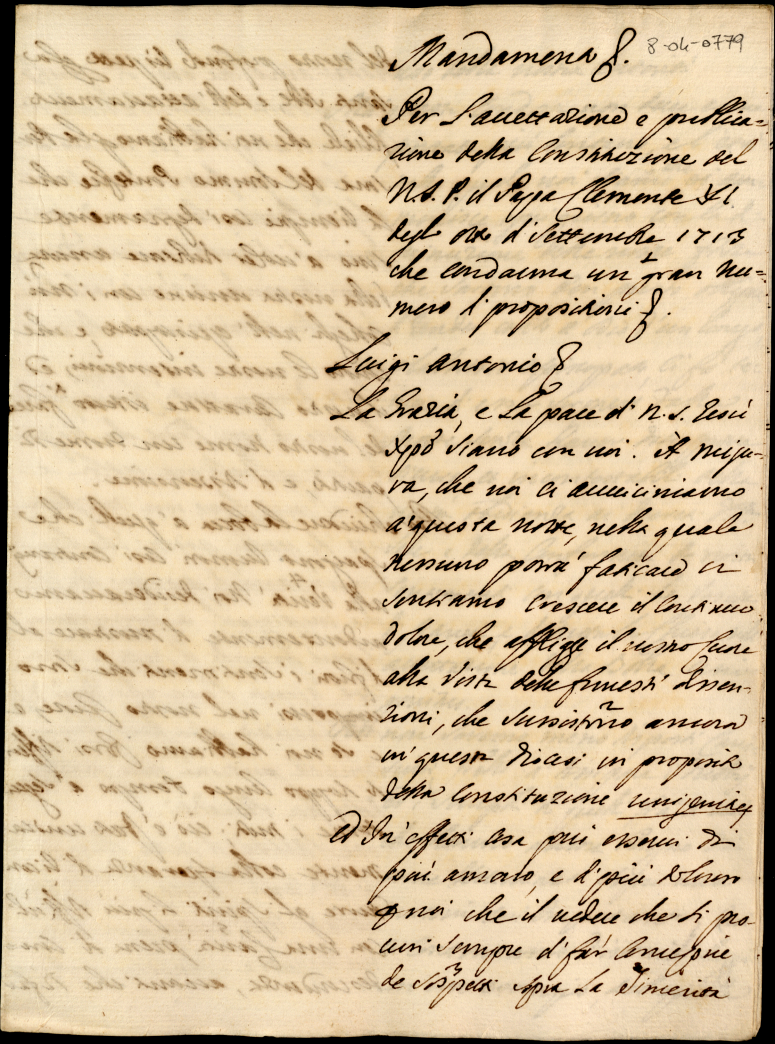 8-04-0779
Mandamena &.
Per L'accettazione e pubblica=
zione della Constituzione del
N.S.P. il Papa Clemente XI
degl otto di Settembre 1713
che condanna un gran nu=
mero di proposizioni &.
Luigi Antonio &
La Grazia, e La pace di N. S. Gesù
Xpõ siano con voi. A misu-
ra, che noi ci avviciniamo
a questa notte, nella quale
nessuno potrà faticare ci
sentiamo crescere il continuo
dolore, che affligge il nostro cuore
alla vista delle funesti dissen-
zioni, che sussistono ancora
in questa diocesi in proposito
della Constituzione unigenitus
Ed in effetti cosa può esserci di
più amaro, e di più doloroso
noi che il vedere che si pro-
curi sempre di far concepire
de sospetti sopra La sincerità